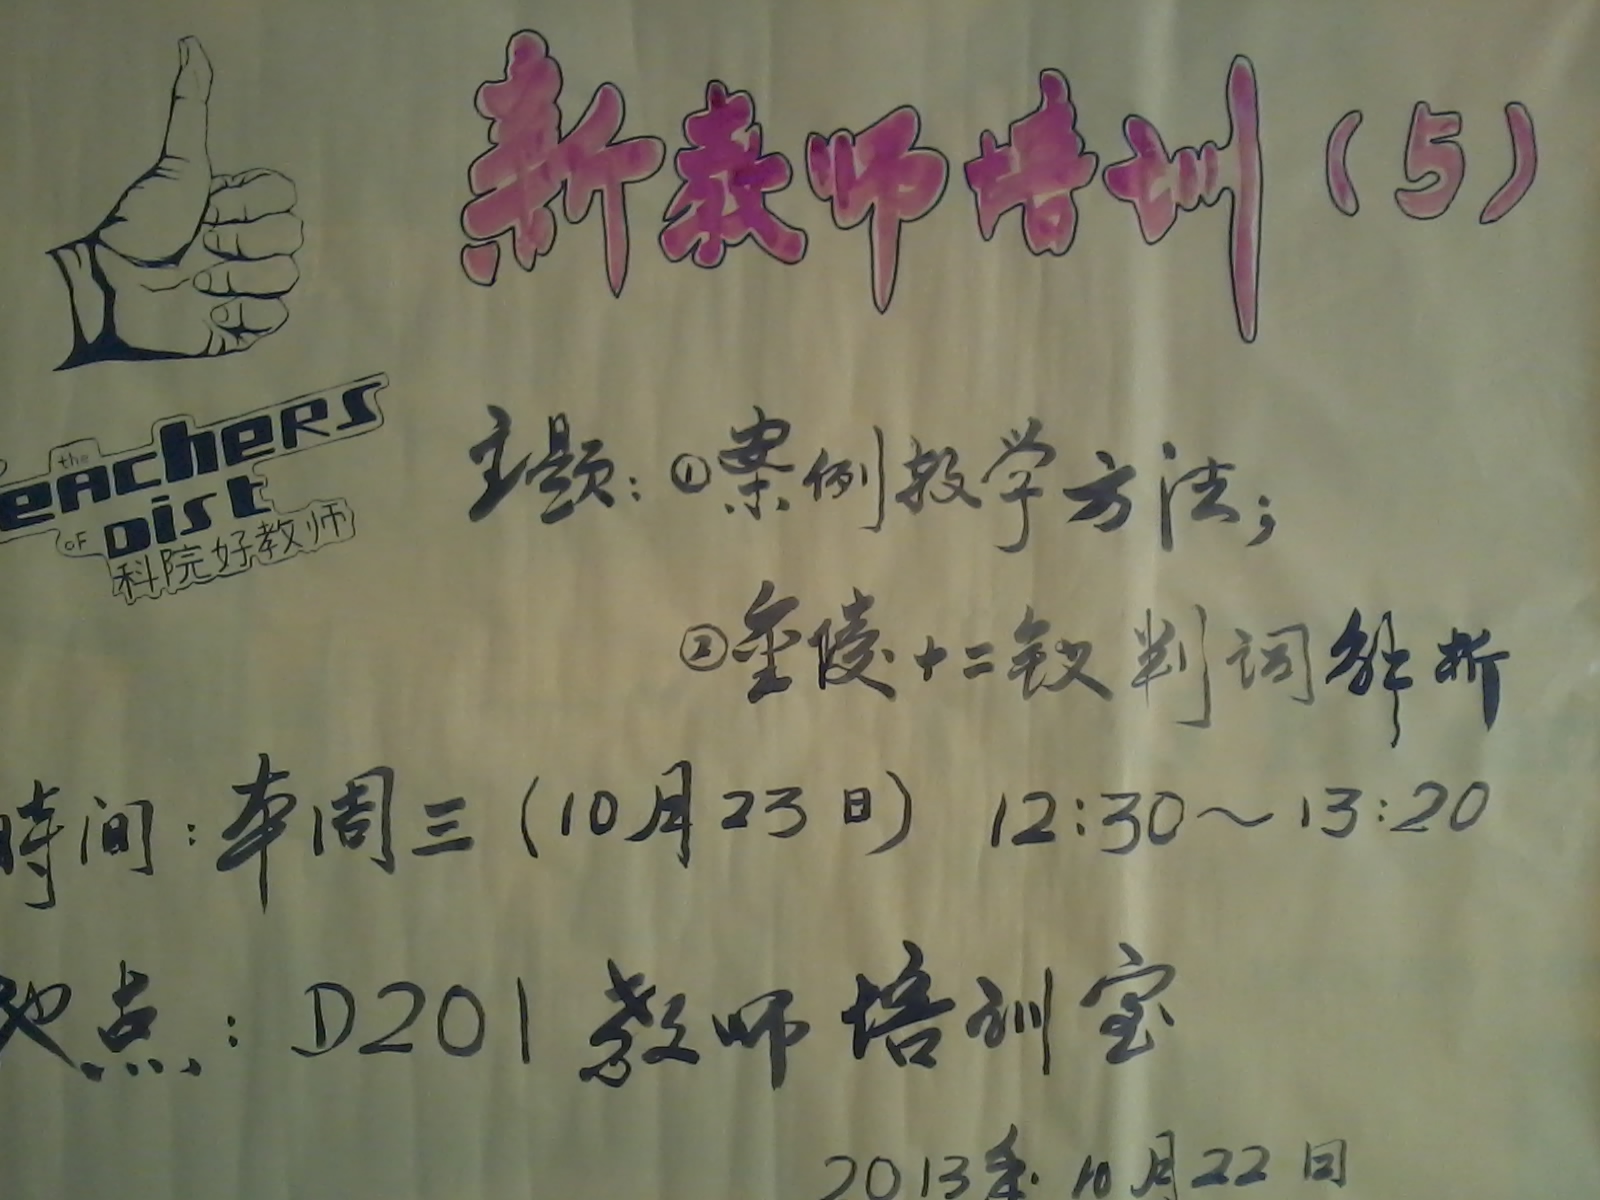 新教师培训（5）
the
eAcheRS
OF Dist
科院好教师
主题：①案例教学方法；
②金陵十二钗判词解析
時间：本周三（10月23日） 12:30～13:20
地点：D201教师培训室
2013年10月22日